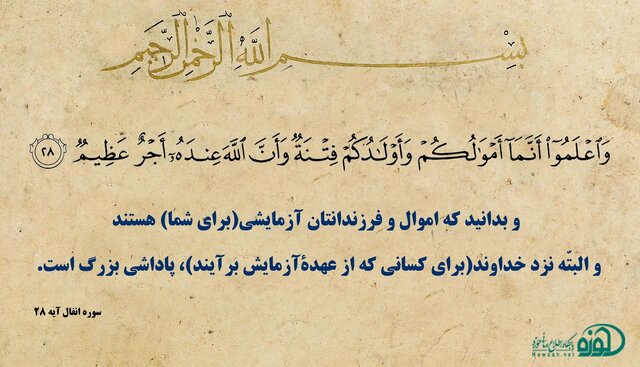 بِسْمِ اللهِ الرَّحْمٰنِ الرَّحِيمِ
وَٱعْلَمُوٓا۟ أَنَّمَآ أَمْوَٰلُكُمْ وَأَوْلَٰدُكُمْ فِتْنَةٌ وَأَنَّ ٱللَّهَ عِندَهُۥٓ أَجْرٌ عَظِيمٌ ٢٨
و بدانید که اموال و فرزندانتان آزمایشی(برای شما) هستند
و البتّه نزد خداوند(برای کسانی که از عهدهٔ آزمایش برآیند)، پاداشی بزرگ است.
سوره انفال آیه ۲۸
حوزه پایگاه اطلاع رسانی حوزه
Hawzah.net